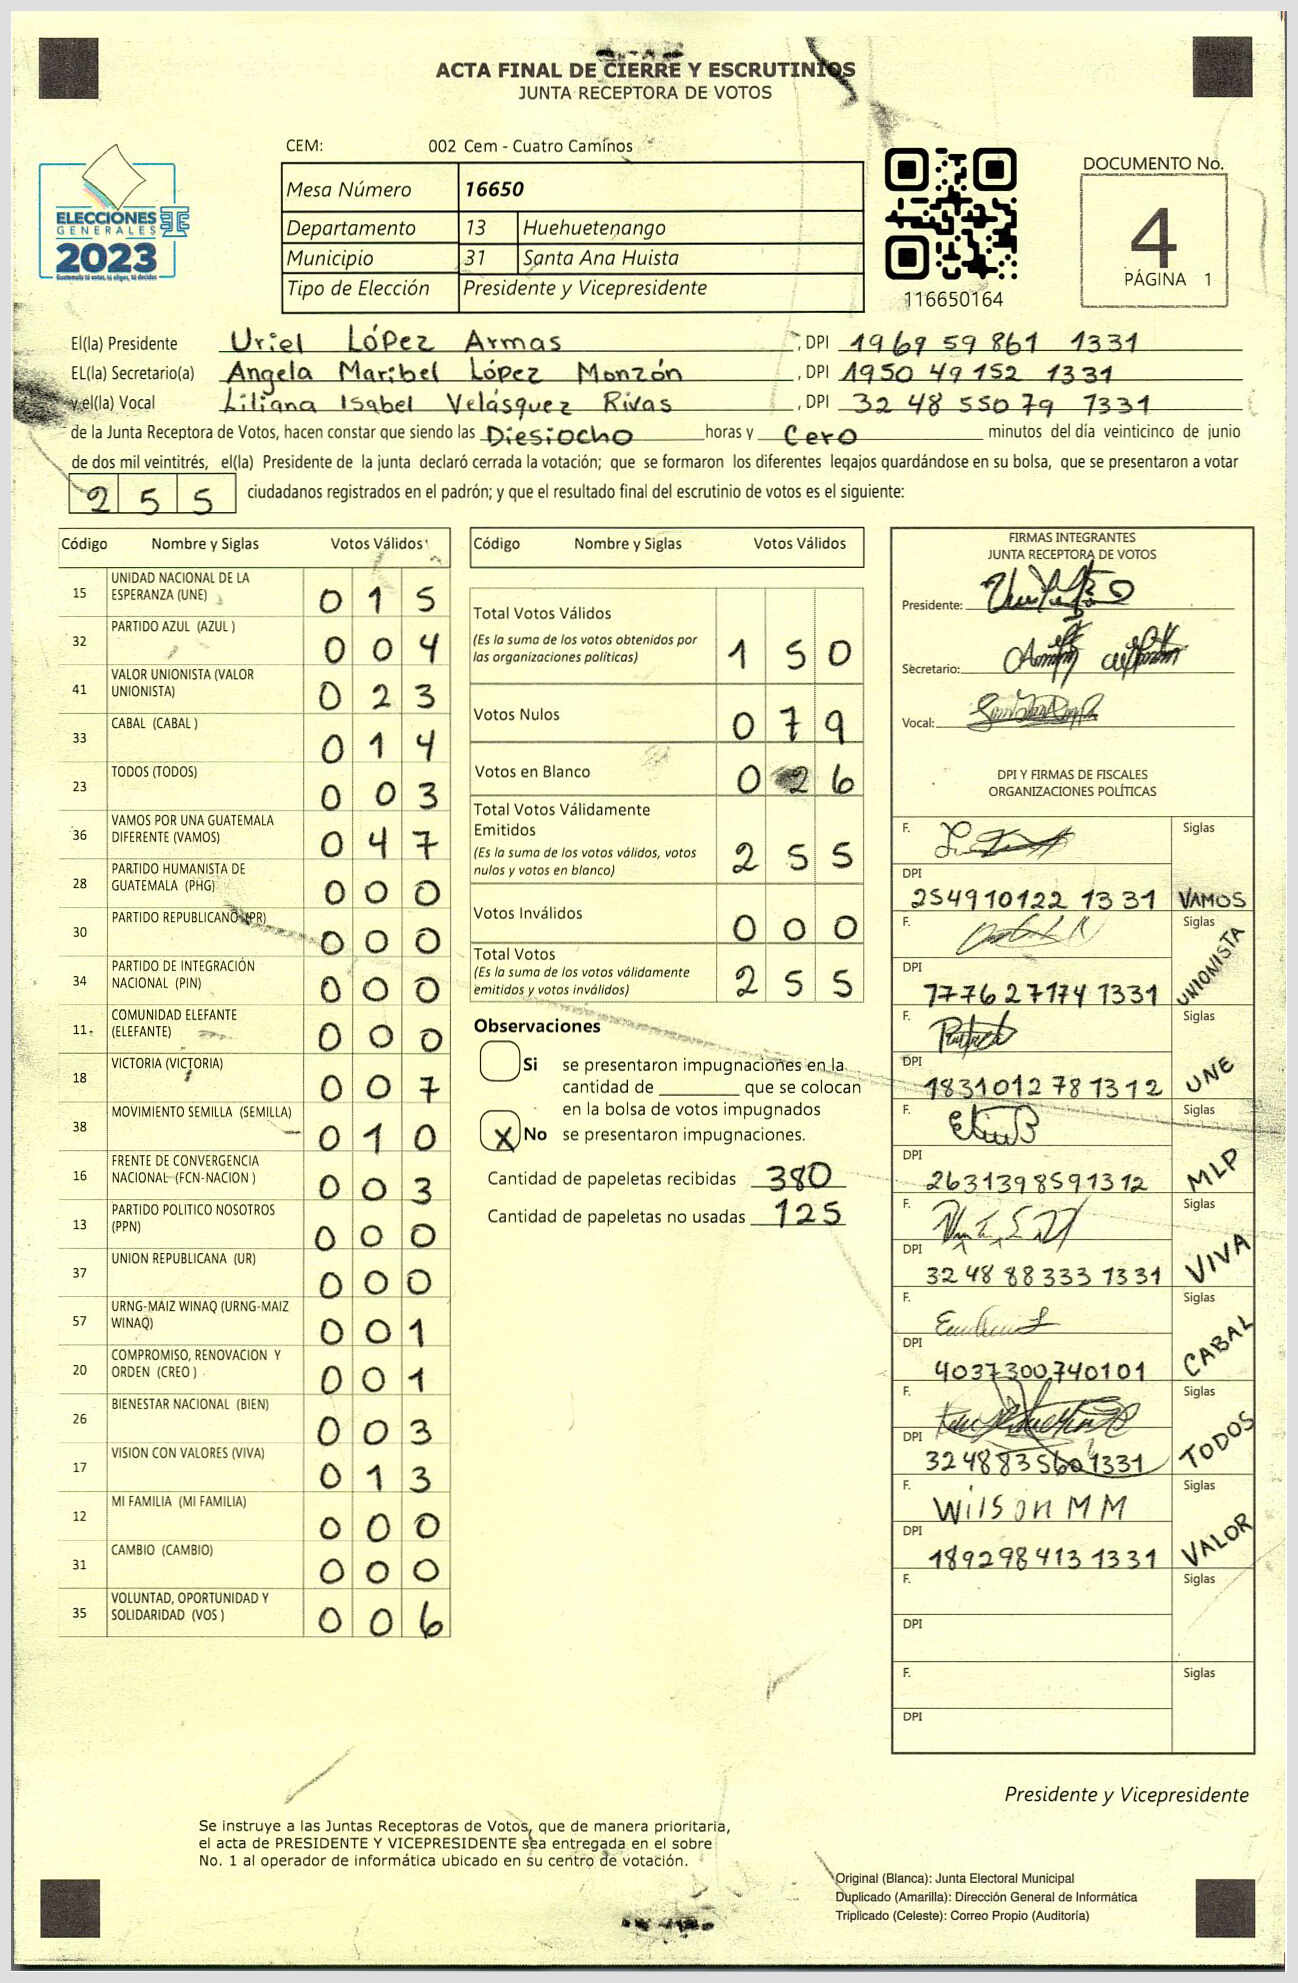 ACTA FINAL DE CIERRE Y ESCRUTINIOS
JUNTA RECEPTORA DE VOTOS
ELECCIONES
GENERALES
2023
Guatemala tú votas, tú eliges, tú decides
CEM: 002 Cem - Cuatro Caminos
Mesa Número 16650
Departamento 13 Huehuetenango
Municipio 31 Santa Ana Huista
Tipo de Elección Presidente y Vicepresidente
116650164
DOCUMENTO No.
4
PÁGINA 1
El(la) Presidente Uriel López Armas, DPI 1969 59 861 1331
EL(la) Secretario(a) Angela Maribel López Monzón, DPI 1950 49 152 1331
y el(la) Vocal Liliana Isabel Velásquez Rivas, DPI 32 48 55079 1331
de la Junta Receptora de Votos, hacen constar que siendo las Diesiocho horas y Cero minutos del día veinticinco de junio
de dos mil veintitrés, el(la) Presidente de la junta declaró cerrada la votación; que se formaron los diferentes legajos quardándose en su bolsa, que se presentaron a votar
255 ciudadanos registrados en el padrón; y que el resultado final del escrutinio de votos es el siguiente:
Código Nombre y Siglas Votos Válidos
15 UNIDAD NACIONAL DE LA ESPERANZA (UNE) 015
32 PARTIDO AZUL (AZUL ) 004
41 VALOR UNIONISTA (VALOR UNIONISTA) 023
33 CABAL (CABAL ) 014
23 TODOS (TODOS) 003
36 VAMOS POR UNA GUATEMALA DIFERENTE (VAMOS) 047
28 PARTIDO HUMANISTA DE GUATEMALA (PHG) 000
30 PARTIDO REPUBLICANO (PR) 000
34 PARTIDO DE INTEGRACIÓN NACIONAL (PIN) 000
11 COMUNIDAD ELEFANTE (ELEFANTE) 000
18 VICTORIA (VICTORIA) 007
38 MOVIMIENTO SEMILLA (SEMILLA) 010
16 FRENTE DE CONVERGENCIA NACIONAL (FCN-NACION ) 003
13 PARTIDO POLITICO NOSOTROS (PPN) 000
37 UNION REPUBLICANA (UR) 000
57 URNG-MAIZ WINAQ (URNG-MAIZ WINAQ) 001
20 COMPROMISO, RENOVACION Y ORDEN (CREO ) 001
26 BIENESTAR NACIONAL (BIEN) 003
17 VISION CON VALORES (VIVA) 013
12 MI FAMILIA (MI FAMILIA) 000
31 CAMBIO (CAMBIO) 000
35 VOLUNTAD, OPORTUNIDAD Y SOLIDARIDAD (VOS ) 006
Código Nombre y Siglas Votos Válidos
Total Votos Válidos
(Es la suma de los votos obtenidos por las organizaciones políticas) 150
Votos Nulos 079
Votos en Blanco 026
Total Votos Válidamente Emitidos
(Es la suma de los votos válidos, votos nulos y votos en blanco) 255
Votos Inválidos 000
Total Votos
(Es la suma de los votos válidamente emitidos y votos inválidos) 255
Observaciones
Si se presentaron impugnaciones en la
cantidad de ________ que se colocan
en la bolsa de votos impugnados
X No se presentaron impugnaciones.
Cantidad de papeletas recibidas 380
Cantidad de papeletas no usadas 125
FIRMAS INTEGRANTES
JUNTA RECEPTORA DE VOTOS
Presidente:
Secretario:
Vocal:
DPI Y FIRMAS DE FISCALES
ORGANIZACIONES POLÍTICAS
F. Siglas
DPI 254910122 1331 VAMOS
F. Siglas
DPI 7776 27174 1331 UNIONISTA
F. Siglas
DPI 1831012 78 1312 UNE
F. Siglas
DPI 2631398591312 MLP
F. Siglas
DPI 32 48 88 333 1331 VIVA
F. Siglas
DPI 4037300740101 CABAL
F. Siglas
DPI 3248835601331 TODOS
F. Wilson M M Siglas
DPI 189298413 1331 VALOR
F. Siglas
DPI
F. Siglas
DPI
Presidente y Vicepresidente
Se instruye a las Juntas Receptoras de Votos, que de manera prioritaria,
el acta de PRESIDENTE Y VICEPRESIDENTE sea entregada en el sobre
No. 1 al operador de informática ubicado en su centro de votación.
Original (Blanca): Junta Electoral Municipal
Duplicado (Amarilla): Dirección General de Informática
Triplicado (Celeste): Correo Propio (Auditoría)